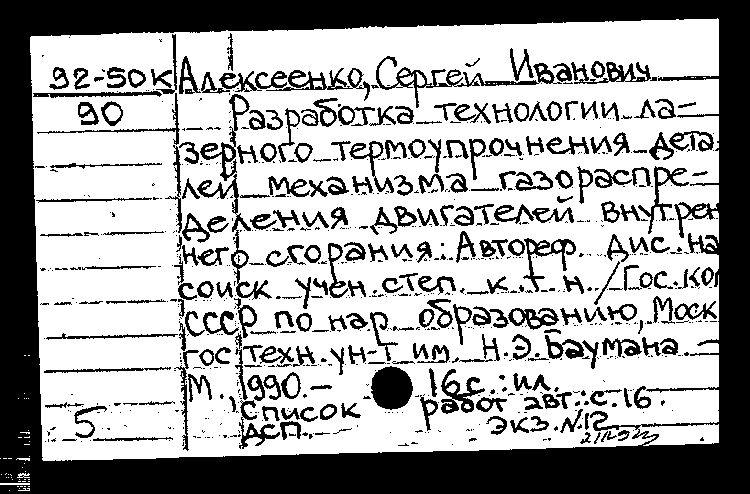 92-50К Алексеенко, Сергей Иванович
90 Разработка технологии ла-
зерного термоупрочнения дета
лей механизма газораспре-
деления двигателей внутрен
него сгорания: Автореф. дис. на
соиск учен. степ. к. т. н. / Гос. ком
СССР по нар. образованию, Моск
гос техн. ун-т им. Н.Э. Баумана. —
М., 1990. — 16 с. : ил.
5 Список работ авт.: с. 16.
ДСП. Экз. N12